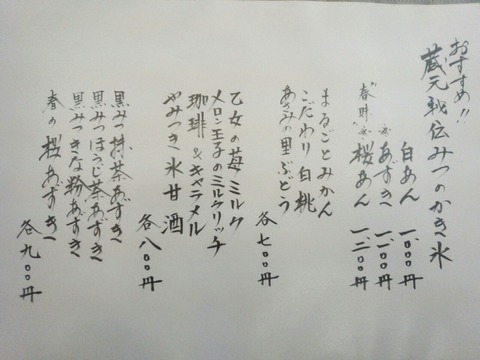 おすすめ!!
蔵元秘伝みつのかき氷
白あん 一、〇〇〇円
あずき 一、一〇〇円
春時 桜あん 一、二〇〇円
まるごとみかん
こだわり白桃
あさみの里ぶどう
各七〇〇円
乙女の苺ミルク
メロン王子のミルクリッチ
珈琲&キャラメル
やみつき氷甘酒
各八〇〇円
黒みつ抹茶あずき
黒みつほうじ茶あずき
黒みつきな粉あずき
春の桜あずき
各九〇〇円